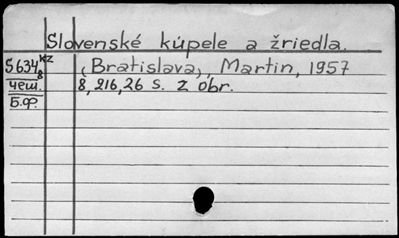 Slovenské kúpele a žriedla.
S 634 kz
8
чеш.
Б.Ф.
(Bratislava), Martin, 1957
8, 216, 26 s. z obr.